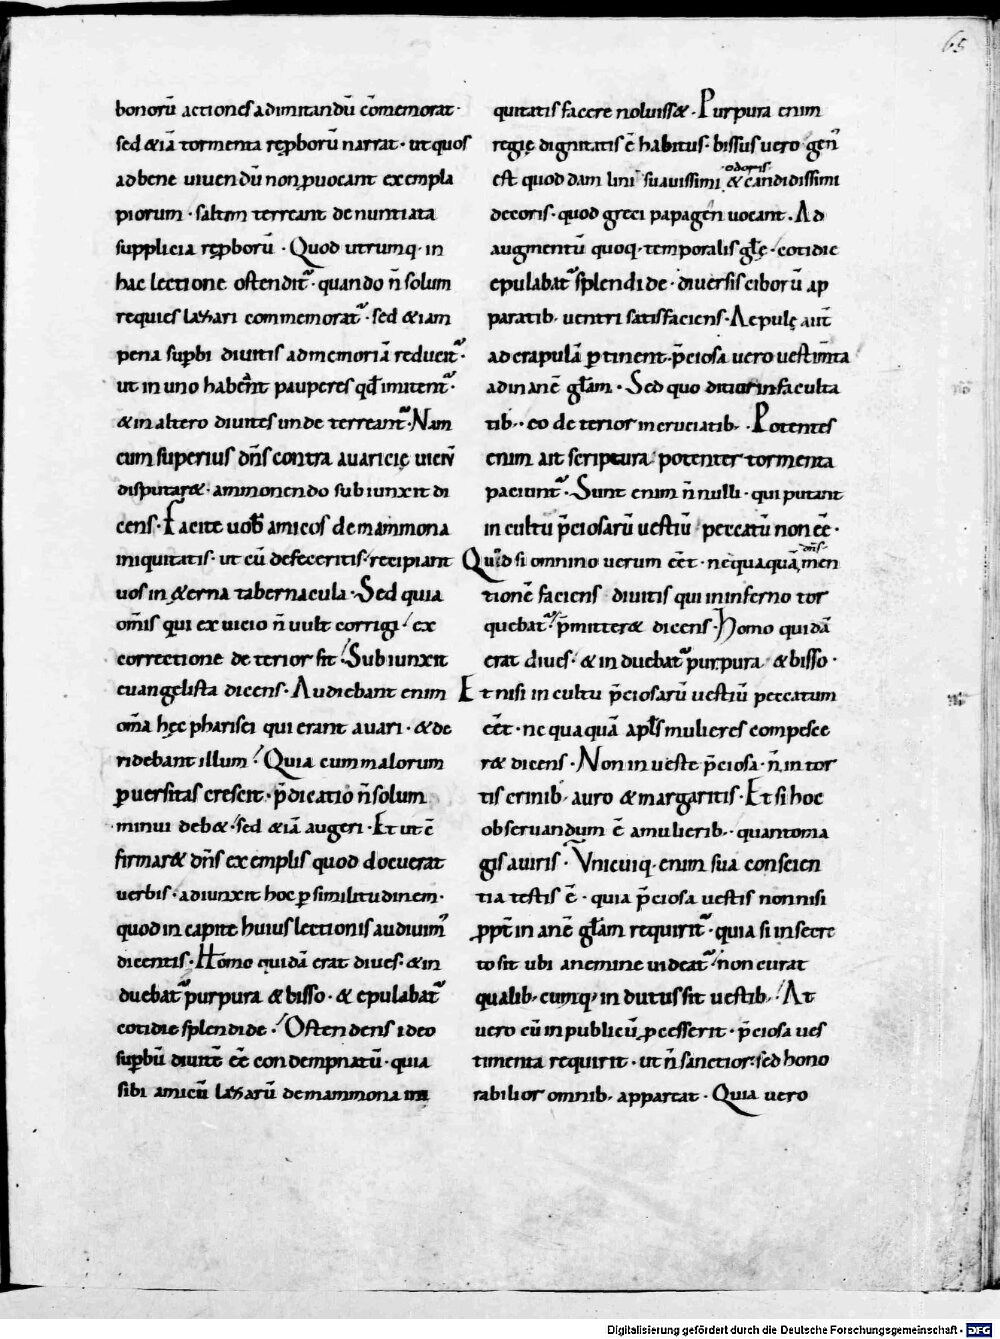 65
bonorū actiones ad imitandū cōmemorat·
sed &iā tormenta rep̱borū narrat· ut quos
ad bene uiuendū non p̱uocant exempla
piorum· saltim terreant denuntiata
supplicia rep̱borū· Quod utrumq· in
hac lectione ostendit᷑· quando n̄ solum
requies lazari commemorat᷑· sed &iam
pena sup̱bi diuitis ad memoriā reducit᷑·
ut in uno haber̄nt pauperes qđ imitent᷑·
& in altero diuites unde terreant᷑· Nam
cum superius dn̄s contra auaricię uiciū
disputar&· ammonendo subiunxit di
cens· Facite uob̄ amicos de mammona
iniquitatis· ut cū defeceritis· recipiant
uos in &erna tabernacula· Sed quia
om̄is qui ex uicio n̄ uult corrigi· ex
correctione deterior fit· Subiunxit
euangelista dicens· Audiebant enim
om̄a hęc pharisei qui erant auari· & de
ridebant illum· Quia cum malorum
p̱uersitas crescit· p̄dicatio n̄ solum
minui deb&· sed &iā augeri· Et ut ē
firmar& dn̄s exemplis quod docuerat
uerbis· adiunxit hoc p̱ similitudinem·
quod in capite huius lectionis audiuim᷒
dicentis· Homo quidā erat diues· & in
duebat᷑ purpura & bisso· & epulabat᷑
cotidie splendide· Ostendens ideo
sup̱bū diuitē eē condempnatū· quia
sibi amicū lazarū de mammona in
quitatis facere noluiss&· Purpura enim
regię dignitatis ē habitus· bissus uero gen᷒
est quoddam lini suauissimi odoris & candidissimi
decoris· quod greci papagen uocant· Ad
augmentū quoq· temporalis gl̄ę· cotidie
epulabat᷑ splendide· diuersis ciborū ap
paratib· uentri satisfaciens· Aepulę aut̄
ad crapulā p̱tinent· p̄ciosa uero uestim̄ta
ad inanē gl̄am· Sed quo ditior in faculta
tib·· eo deterior in cruciatib·· Potentes
enim ait scriptura· potenter tormenta
paciunt᷑· Sunt enim n̄nulli· qui putant
in cultu p̄ciosarū uestiū peccatū non eē·
Quod si omnino uerum eēt· nequaquā dn̄s men
tionē faciens diuitis qui in inferno tor
quebat᷑ p̄mitter& dicens· Homo quidā
erat diues· & induebat᷑ purpura & bisso·
Et nisi in cultu p̄ciosarū uestiū peccatum
eēt· nequaquā apl̄s mulieres compesce
r& dicens· Non in ueste p̄ciosa· n̄ in tor
tis crinib· auro & margaritis· Et si hoc
obseruandum ē a mulierib·· quanto ma
gis a uiris· Vnicuiq· enim sua conscien
tia testis ē· quia p̄ciosa uestis non nisi
p̱pt̄ inanē gl̄am requirit᷑· quia si in secre
to sit ubi a nemine uideat᷑· non curat
qualib·cumq· indutus sit uestib·· At
uero cū in publicū p̱cesserit· p̄ciosa ues
timenta requirit· ut n̄ sanctior· sed hono
rabilior omnib· appareat· Quia uero
Digitalisierung gefördert durch die Deutsche Forschungsgemeinschaft - DFG